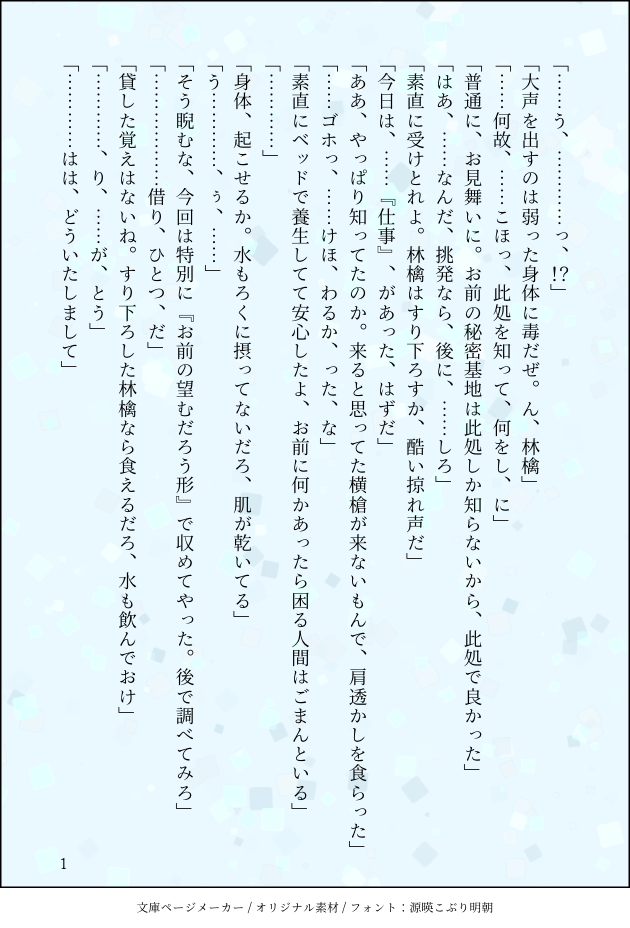 「……う、…………っ、!?」
「大声を出すのは弱った身体に毒だぜ。ん、林檎」
「……何故、……こほっ、此処を知って、何をし、に」
「普通に、お見舞いに。お前の秘密基地は此処しか知らないから、此処で良かった」
「はあ、……なんだ、挑発なら、後に、……しろ」
「素直に受けとれよ。林檎はすり下ろすか、酷い掠れ声だ」
「今日は、……『仕事』、があった、はずだ」
「ああ、やっぱり知ってたのか。来ると思ってた横槍が来ないもんで、肩透かしを食らった」
「……ゴホっ、……けほ、わるか、った、な」
「素直にベッドで養生してて安心したよ、お前に何かあったら困る人間はごまんといる」
「…………」
「身体、起こせるか。水もろくに摂ってないだろ、肌が乾いてる」
「う…………、ぅ、……」
「そう睨むな、今回は特別に『お前の望むだろう形』で収めてやった。後で調べてみろ」
「………………借り、ひとつ、だ」
「貸した覚えはないね。すり下ろした林檎なら食えるだろ、水も飲んでおけ」
「…………、り、……が、とう」
「…………はは、どういたしまして」
1
文庫ページメーカー / オリジナル素材 / フォント：源暎こぶり明朝